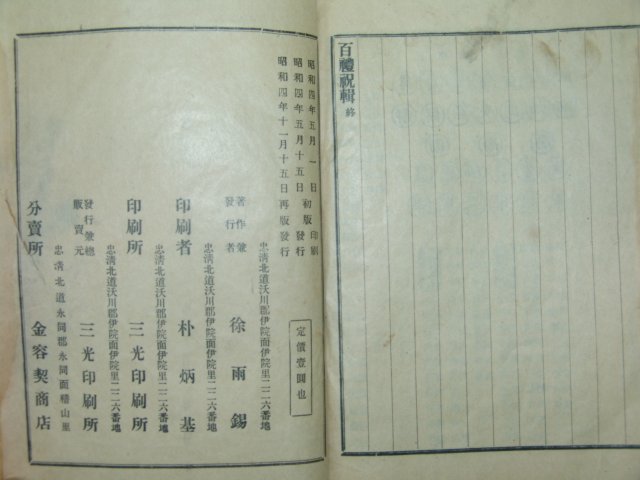 百禮祝輯 終
昭和四年五月一日 初版印刷
昭和四年五月十五日 發行
昭和四年十一月十五日再版發行
定價壹圓也
忠淸北道沃川郡伊院面伊院里二二六番地
著作兼發行者 徐雨錫
忠淸北道沃川郡伊院面伊院里二二六番地
印刷者 朴炳基
忠淸北道沃川郡伊院面伊院里二二六番地
印刷所 三光印刷所
忠淸北道沃川郡伊院面伊院里二二六番地
發行兼總販賣元 三光印刷所
忠淸北道永同郡永同面稽山里
分賣所 金容契商店